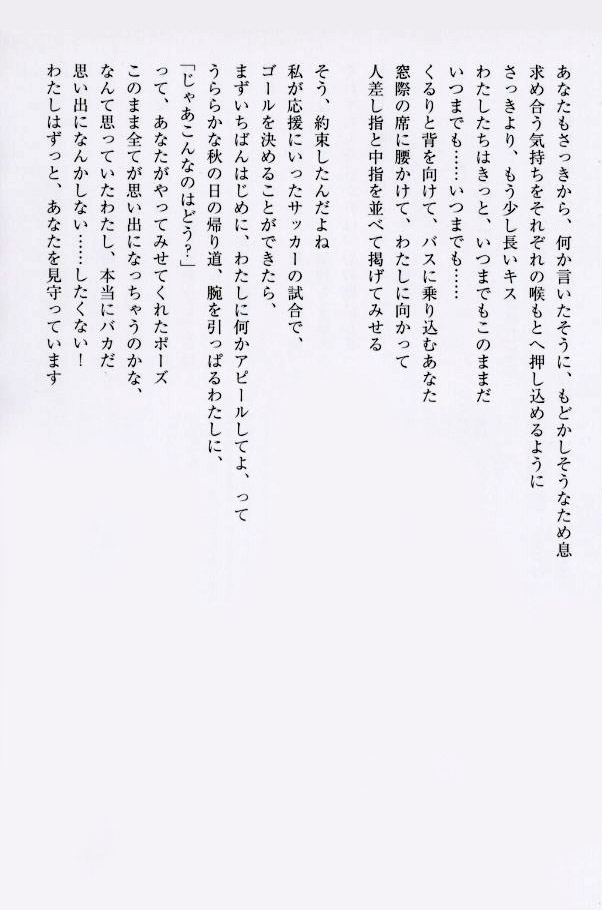 あなたもさっきから、何か言いたそうに、もどかしそうなため息
求め合う気持ちをそれぞれの喉もとへ押し込めるように
さっきより、もう少し長いキス
わたしたちはきっと、いつまでもこのままだ
いつまでも……いつまでも……
くるりと背を向けて、バスに乗り込むあなた
窓際の席に腰かけて、わたしに向かって
人差し指と中指を並べて掲げてみせる
そう、約束したんだよね
私が応援にいったサッカーの試合で、
ゴールを決めることができたら、
まずいちばんはじめに、わたしに何かアピールしてよ、って
うららかな秋の日の帰り道、腕を引っぱるわたしに、
「じゃあこんなのはどう？」
って、あなたがやってみせてくれたポーズ
このまま全てが思い出になっちゃうのかな、
なんて思っていたわたし、本当にバカだ
思い出になんかしない……したくない！
わたしはずっと、あなたを見守っています